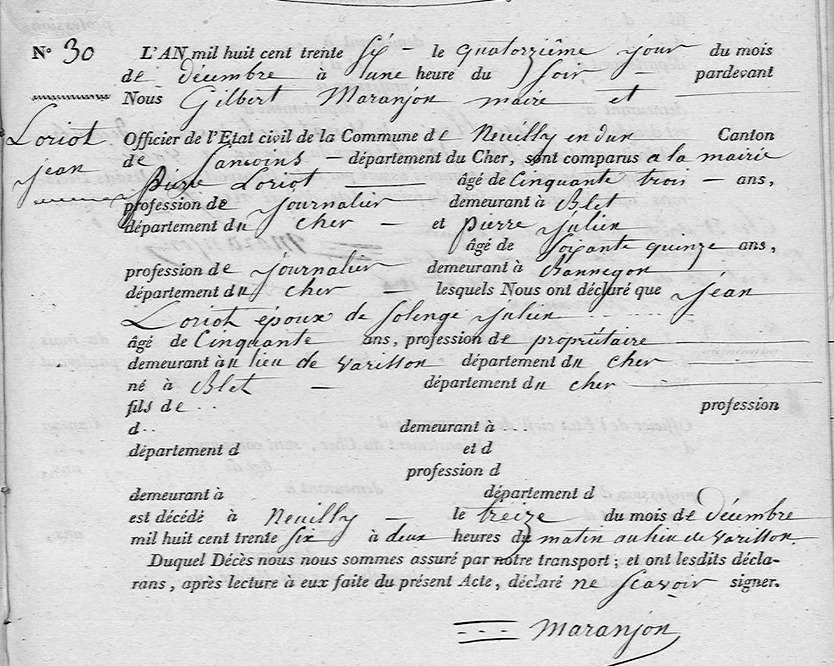 N° 30 L'AN mil huit cent trente Six - le quatorzième jour du mois
de décembre à une heure du Soir - pardevant
Nous Gilbert Maranjon maire et
Loriot Officier de l'Etat civil de la Commune de Neuilly en dun Canton
jean de Sancoins - département du Cher, sont comparus a la mairie
Pierre Loriot - âgé de Cinquante trois - ans,
profession de journalier demeurant à Blet
département du Cher - et pierre julien
âgé de Soixante quinze ans,
profession de journalier demeurant à Bannegon
département du Cher - lesquels Nous ont déclaré que jean
Loriot époux de Solenge julien
âgé de Cinquante ans, profession de propriétaire
demeurant au lieu de Varisson département du Cher
né à Blet - département du Cher
fils de profession
d demeurant à
département d et d
profession d
demeurant à département d
est décédé à Neuilly - le treize du mois de décembre
mil huit cent trente six à deux heures du matin au lieu de Varisson.
Duquel Décès nous nous sommes assuré par notre transport ; et ont lesdits décla-
rans, après lecture à eux faite du présent Acte, déclaré ne Scavoir signer.
Maranjon